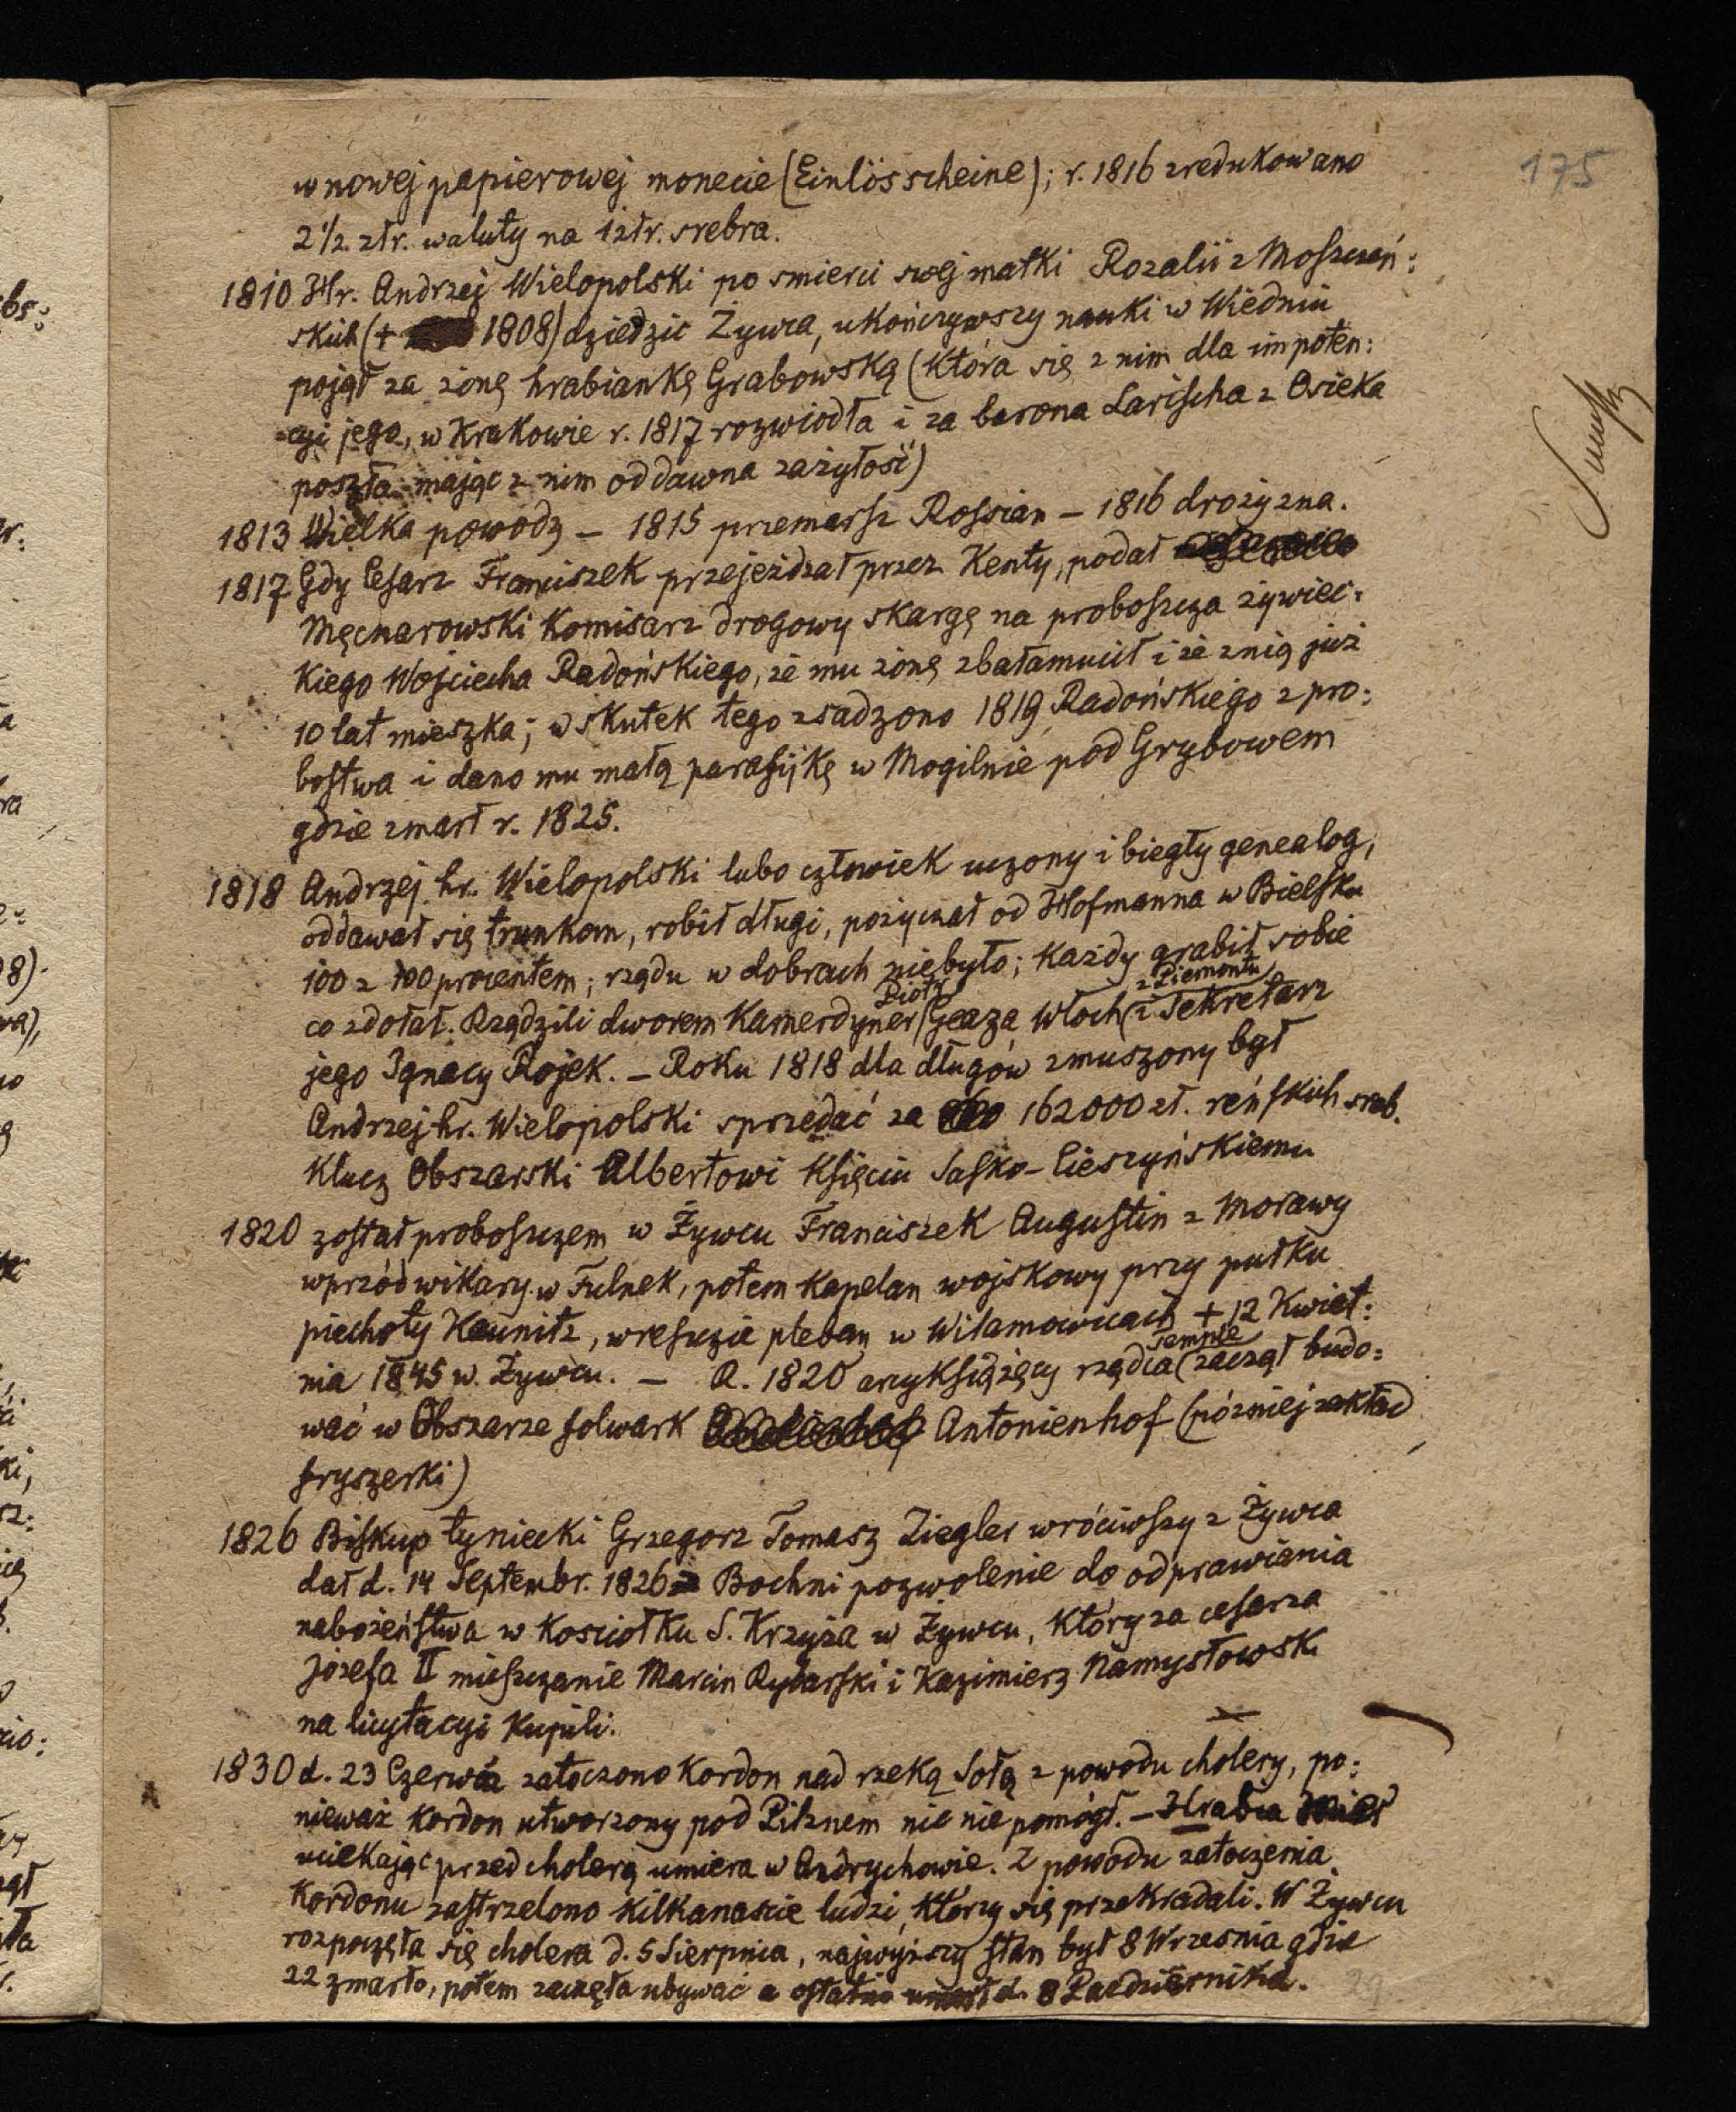 175
w nowej papierowej monecie (Einlösscheine); r. 1816 zredukowano
2 1/2 złr. waluty na 1 złr. srebra.
1810 Hr. Andrzej Wielopolski po smierci swej matki Rozalii z Moszczeń:
skich (+ 1808) dziedzic Żywca, ukończywszy nauki w Wiedniu
pojął za żonę hrabiankę Grabowską (która się z nim dla impoten:
cyi jego, w Krakowie r. 1817 rozwiodła i za barona Larischa z Osieka
poszła mając z nim oddawna zażyłość)
1813 Wielka powodz – 1815 przemarsz Rossian – 1816 drożyzna.
1817 Gdy Cesarz Franciszek przejeżdzał przez Kenty, podał
Męcnarowski Komisarz drogowy skargę na proboszcza żywiec:
kiego Wojciecha Radońskiego, że mu żonę zbałamucił i że z nią już
10 lat mieszka; w skutek tego zsadzono 1819 Radońskiego z pro:
bostwa i dano mu małą parafijkę w Mogilnie pod Grybowem
gdzie zmarł r. 1825.
1818 Andrzej hr. Wielopolski lubo człowiek uczony i biegły genealog,
oddawał się trunkom, robił długi, pożyczał od Hofmanna w Bielsku
100 z 100 procentem; rządu w dobrach niebyło; każdy grabił sobie
co zdołał. Rządzili dworem Kamerdyner Piotr Geaza Włoch z Piemontu i Sekretarz
jego Ignacy Rojek. – Roku 1818 dla długów zmuszony był
Andrzej hr. Wielopolski sprzedać za 162000 zł. reńskich sreb.
Klucz Obszarski Albertowi Księciu Sasko-Cieszyńskiemu
1820 został proboszczem w Żywcu Franciszek Augustin z Morawy
wprzód wikary w Fulnek, potem kapelan wojskowy przy pułku
piechoty Kaunitz, wreszcie pleban w Wilamowicach + 12 Kwiet:
nia 1845 w Żywcu. – R. 1820 arcyksiążęcy rządca zaczął budo:
wać w Obszarze folwark Antonienhof (później zakład
fryszerki)
1826 Biskup tyniecki Grzegorz Tomasz Ziegler wróciwszy z Żywca
dał d. 14 Septembr. 1826 Bochni pozwolenie do odprawiania
nabożeństwa w Kosciołku S. Krzyża w Żywcu, który za cesarza
Józefa II mieszczanie Marcin Rybarski i Kazimierz Namysłowski
na licytacyi Kupili.
1830 d. 23 Czerwca zatoczono Kordon nad rzeką Sołą z powodu cholery, po:
nieważ kordon utworzony pod Pilznem nic nie pomógł. – Hrabia
uciekając przed cholerą umiera w Andrychowie. Z powodu zatoczenia
Kordonu zastrzelono kilkanascie ludzi, którzy się przekradali. W Żywcu
rozpoczęła się cholera d. 5 Sierpnia, najwyższy stan był 8 Wrzesnia gdzie
22 zmarło, potem zaczęła ubywać a 8 Pazdziernika.